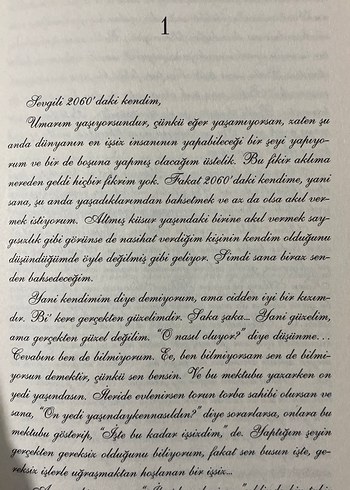 1
Sevgili 2060'daki kendim,
Umarım yaşıyorsundur, çünkü eğer yaşamıyorsan, zaten şu
anda dünyanın en işsiz insanının yapabileceği bir şeyi yapıyo-
rum ve bir de boşuna yapmış olacağım üstelik. Bu fikir aklıma
nereden geldi hiçbir fikrim yok. Fakat 2060'daki kendime, yani
sana, şu anda yaşadıklarımdan bahsetmek ve az da olsa akıl ver-
mek istiyorum. Altmış küsur yaşındaki birine akıl vermek say-
gısızlık gibi görünse de nasihat verdiğim kişinin kendim olduğunu
düşündüğümde öyle değilmiş gibi geliyor. Şimdi sana biraz sen-
den bahsedeceğim.
Yani kendimim diye demiyorum, ama cidden iyi bir kızım-
dır. Bi' kere gerçekten güzelimdir. Şaka şaka... Yani güzelim,
ama gerçekten güzel değilim. "O nasıl oluyor?" diye düşünme...
Cevabını ben de bilmiyorum. Ee, ben bilmiyorsam sen de bilmi-
yorsun demektir, çünkü sen bensin. Ve bu mektubu yazarken on
yedi yaşındasın. İleride evlenirsen torun torba sahibi olursan ve
sana, "On yedi yaşındaykennasıldın?" diye sorarlarsa, onlara bu
mektubu gösterip, "İşte bu kadar işsizdim," de. Yaptığım şeyin
gerçekten gereksiz olduğunu biliyorum, fakat sen busun işte, ge-
reksiz işlerle uğraşmaktan hoşlanan bir işsiz...